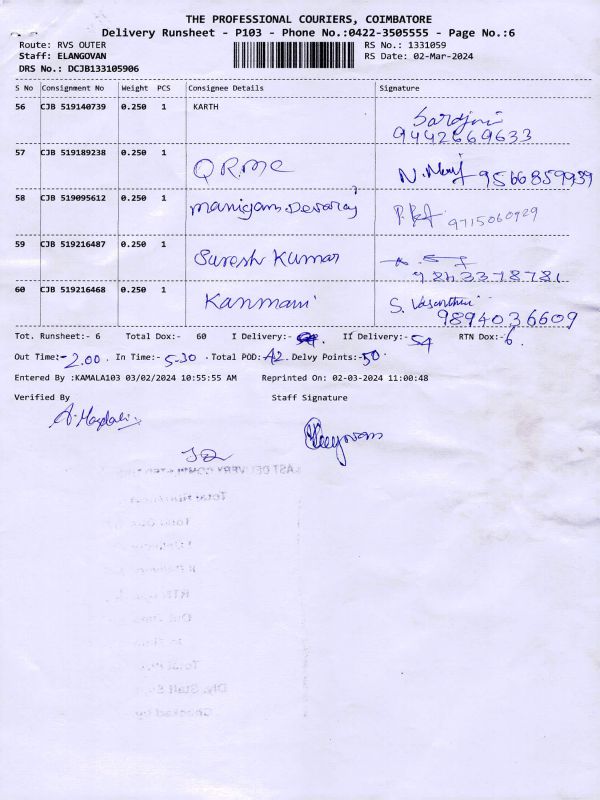 THE PROFESSIONAL COURIERS, COIMBATORE
Delivery Runsheet - P103 - Phone No.:0422-3505555 - Page No.:6
Route: RVS OUTER RS No.: 1331059
Staff: ELANGOVAN RS Date: 02-Mar-2024
DRS No.: DCJB133105906
S No Consignment No Weight PCS Consignee Details Signature
56 CJB 519140739 0.250 1 KARTH
9442669633
57 CJB 519189238 0.250 1
QRMC 9566859939
58 CJB 519095612 0.250 1
Manigam.Devaraj 9715060929
59 CJB 519216487 0.250 1
Suresh Kumar
9843378781
60 CJB 519216468 0.250 1
Kanmani S. Vasanthi
9894036609
Tot. Runsheet:- 6 Total Dox:- 60 I Delivery:- II Delivery:- 54 RTN Dox:- 6.
Out Time:- 2.00 . In Time:- 5-30 . Total POD:- 42. Delvy Points:- 50.
Entered By :KAMALA103 03/02/2024 10:55:55 AM Reprinted On: 02-03-2024 11:00:48
Verified By Staff Signature